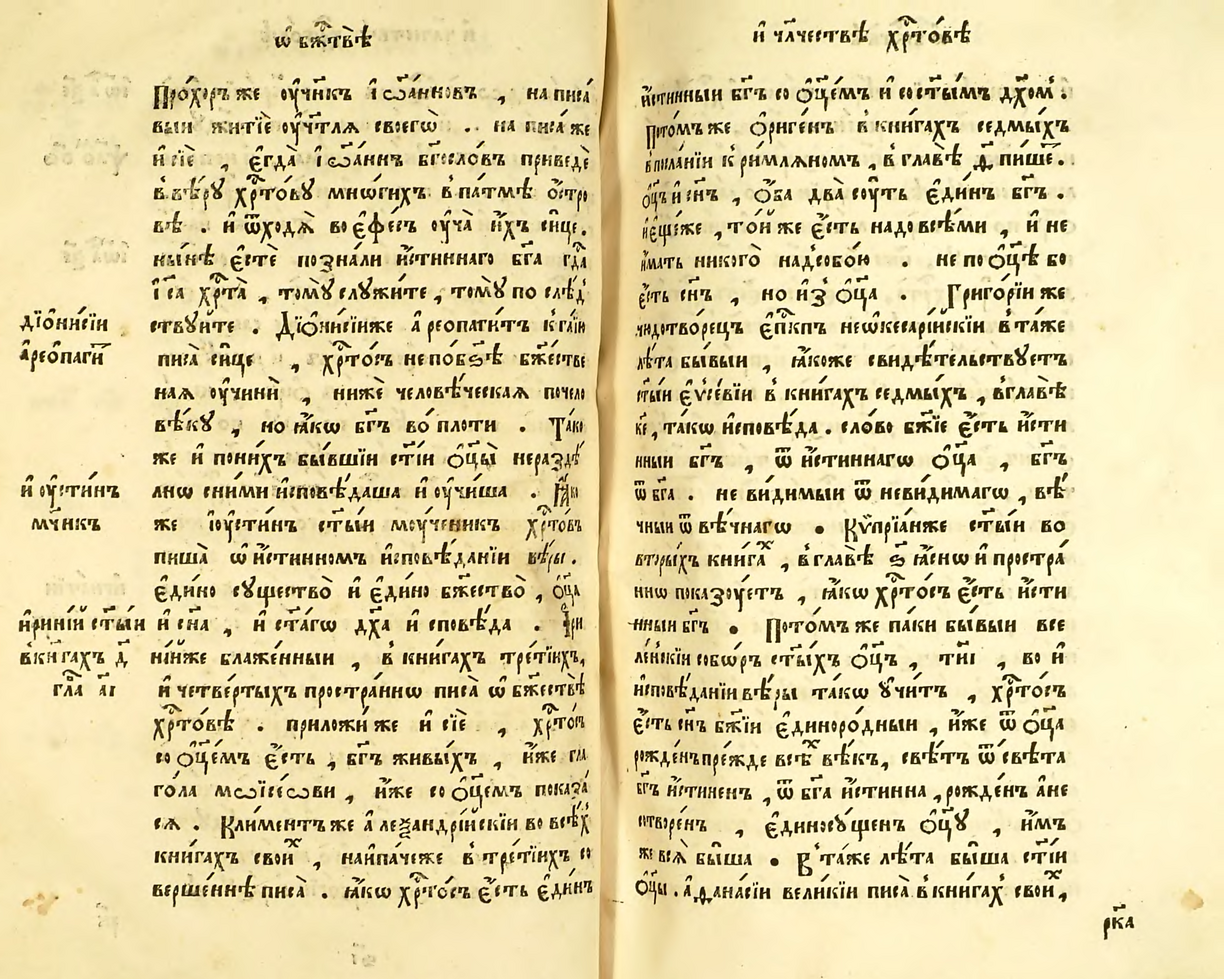 ѡ҆ бж҃твѣ
Про́хоръ же ᲂу҆чн҃къ і҆ѡа́нновъ , написа́
выи житїе ᲂу҆чт҃лѧ своегѡ̀ .. написа же
и҆ сїе , є҆гда̀ і҆ѡа́ннъ бг҃осло́въ приведѐ
в вѣ́рꙋ хрⷭ҇то́вꙋ мнѡ́гихъ в па́тмѣ ѻ҆́стро
вѣ . и҆ ѿходѧ̀ во є҆фе́съ ᲂу҆ча̀ и҆́хъ си́це .
ны́нѣ є҆стѐ позна́ли и҆́стиннаго бг҃а гдⷭ҇а
і҆са хрⷭ҇та̀ , томꙋ̀ слꙋжи́те , томꙋ̀ послѣ́д
ствꙋйте . Дїѻни́сїиже а҆реопаги́тъ к га́їи
писа̀ си́це , хрⷭ҇то́съ не по бз҃ѣ бж҃естве
наѧ ᲂу҆чинѝ , нижѐ человѣ́ческаѧ по чело
вѣ́кꙋ , но ꙗ҆́кѡ бг҃ъ во́ плоти . Та́ко
же и҆ по ни́хъ бы́вшїи ст҃і́и ѻ҆ц҃ы̀ неразд́ѣ
лнѡ с ни́ми и҆сповѣ́даша и҆ ᲂу҆чи́ша . Ꙗ҆́ко
же і҆ᲂу҆сти́нъ ст҃ы́и моу́ченикъ хрⷭ҇то́въ
пиша̀ ѡ҆ и҆́стинномъ и҆сповѣ́данїи вѣ́ры .
є҆ди́но сꙋщество̀ и҆ є҆ди́но бж҃ество̀ , ѻ҆ц҃а
и҆ сн҃а , и҆ ст҃а́гѡ дх҃а и҆споведа . И҆ри
ні́иже блаже́нныи , в кни́гахъ тре́тїихъ,
и҆ четве́ртыхъ простра́ннѡ писа̀ ѡ҆ бж҃ествѣ̀
хрⷭ҇то́вѣ . приложи́ же и҆ сїѐ , хрⷭ҇то́съ
со ѻ҆ц҃е́мъ є҆́сть , бг҃ъ живы́хъ , и҆́же гла
го́ла мѡисе́ѡви , и҆́же со ѻ҆ц҃е́мъ показа́
сѧ . Кли́ментъ же а҆леѯандрі́искїи во все́хъ
кни́гахъ свои́хъ , наипа́чеже в тре́тїихъ со
верше́ннѣ писа̀ . ꙗ҆́кѡ хрⷭ҇то́съ є҆́сть є҆ди́нъ
дїѻни́сїи
а҆реопаги́
и҆ ᲂу҆сти́нъ
мч҃нкъ
и҆рині́и ст҃ы́и
в кни́гахъ д҃
гла а҃і
и҆ чл҃чествѣ хрⷭ҇то́вѣ
и҆́стинныи бг҃ъ со ѻ҆ц҃е́мъ и҆ со ст҃ы́мъ дх҃ом .
Пото́мъ же ѻ҆риге́нъ в кни́гахъ седмы́хъ
в посла́нїи к ри́млѧномъ , в главѣ̀ д҃ , пи́ше .
ѻ҆ц҃ъ и҆ сн҃ъ , ѻ҆́ба два̀ соу́ть є҆ди́нъ бг҃ъ .
и҆ є҆ще́же , то́й же є҆́сть надо всѣ́ми , и҆ не
и҆́мать никого̀ над собо́ю . не по ѻ҆ц҃ѣ бо
є҆́сть сн҃ъ , но и҆з̾ ѻ҆ц҃а . Григо́рїи же
чюдотво́рецъ є҆пⷭ҇кпъ неѡкесарі́искїи в та́же
лѣ́та бы́выи , ꙗ҆́коже свидѣ́тельствꙋетъ
ст҃ы́и є҆ѵсе́вїи в кни́гахъ седмы́хъ , в главѣ̀
к҃е , та́кѡ и҆сповѣ́да . сло́во бж҃їе є҆́сть и҆сти
нныи бг҃ъ , ѿ и҆́стиннагѡ ѻ҆ц҃а , бг҃ъ
ѿ бг҃а . неви́димыи ѿ неви́димагѡ , вѣ́
чныи ѿ вѣ́чнагѡ . Кѷпрїа́нже ст҃ы́и во
вторы́хъ кни́гахъ , в главѣ̀ ѕ҃ ꙗ҆́снѡ и҆ простра́
ннѡ показꙋ́етъ , ꙗ҆́кѡ хрⷭ҇то́съ є҆́сть и҆́сти
нныи бг҃ъ . Пото́мъ же па́ки бы́выи все
ле́нскїи собѡ́ръ ст҃ы́хъ ѻ҆ц҃ъ , ти҃і , во и҆
и҆сповѣ́данїи вѣ́ры та́кѡ ᲂу҆чи́тъ , хрⷭ҇то́съ
є҆́сть сн҃ъ бж҃їи є҆диноро́дныи , и҆́же ѿ ѻ҆ц҃а
рожде́нъ пре́жде всѣ́хъ вѣ́къ, свѣ́тъ ѿ свѣ́та
бг҃ъ и҆́стиненъ , ѿ бг҃а и҆́стинна , рожде́нъ а҆ не
сотворе́нъ , є҆диносꙋ́щенъ ѻ҆ц҃ꙋ̀ , и҆́мъ
же всѧ̀ бы́ша . В та́же лѣ́та бы́ша ст҃і́и
ѻ҆ц҃ы . а҆ѳана́сїи вели́кїи писа̀ в кни́гахъ свои́хъ,
рк҃а